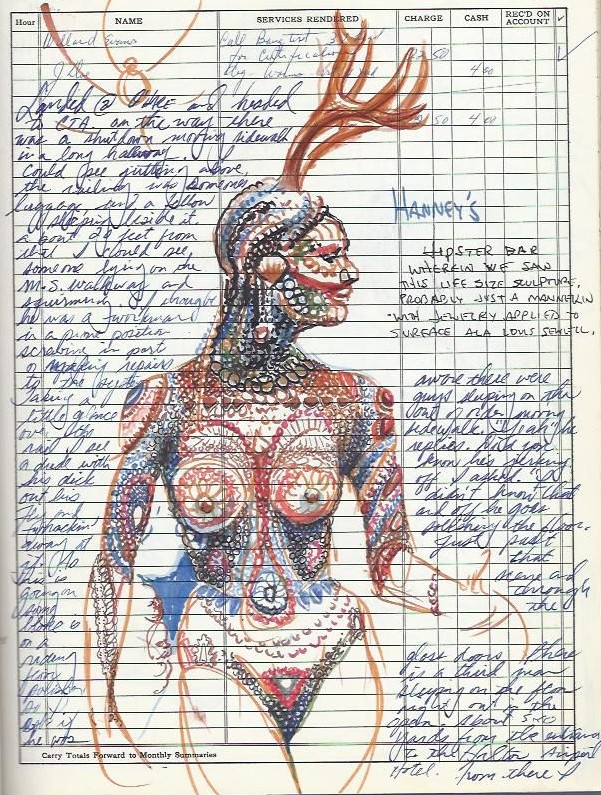 Hour NAME SERVICES RENDERED CHARGE CASH REC'D ON ACCOUNT ✓
Willard Evans Call
for
50
4 00
50 4 00
Landed @ OHARE and headed
to CTA on the way there
was a shutdown moving sidewalk
in a long hallway. I
could see jutting above,
the railing was someones
luggage and a fellow
sleeping beside it.
about 20 feet from
that I could see
someone lying on the
M.S. walkway and
squirming I thought
he was a workman
in a prone position
screwing in part
or making repairs
to the
Taking a
little glance
over
rail I see
a dude with
his dick
out his
and
whackin'
away at
it.
this is
going on
some
bloke is
on a
riding
floor
polisher
as I
ask if
he was
HANNEY'S
HIPSTER BAR
WHEREIN WE SAW
THIS LIFE SIZE SCULPTURE,
PROBABLY JUST A MANNEKIN
WITH JEWELRY APPLIED TO
SURFACE ALA LOUIS
aware there were
guys sleeping on the
out of order moving
sidewalk. "Yeah" he
replies. Did you
know hes jerking
off I asked. "I
didn't know that
and off he goes
polishing the floor.
Just past
that
scene and
through
the
glass doors there
is a third man
sleeping on the floor
right out in the
open. about 500
yards from the entrance
to the Hilton Airport
Hotel. From there I
Carry Totals Forward to Monthly Summaries